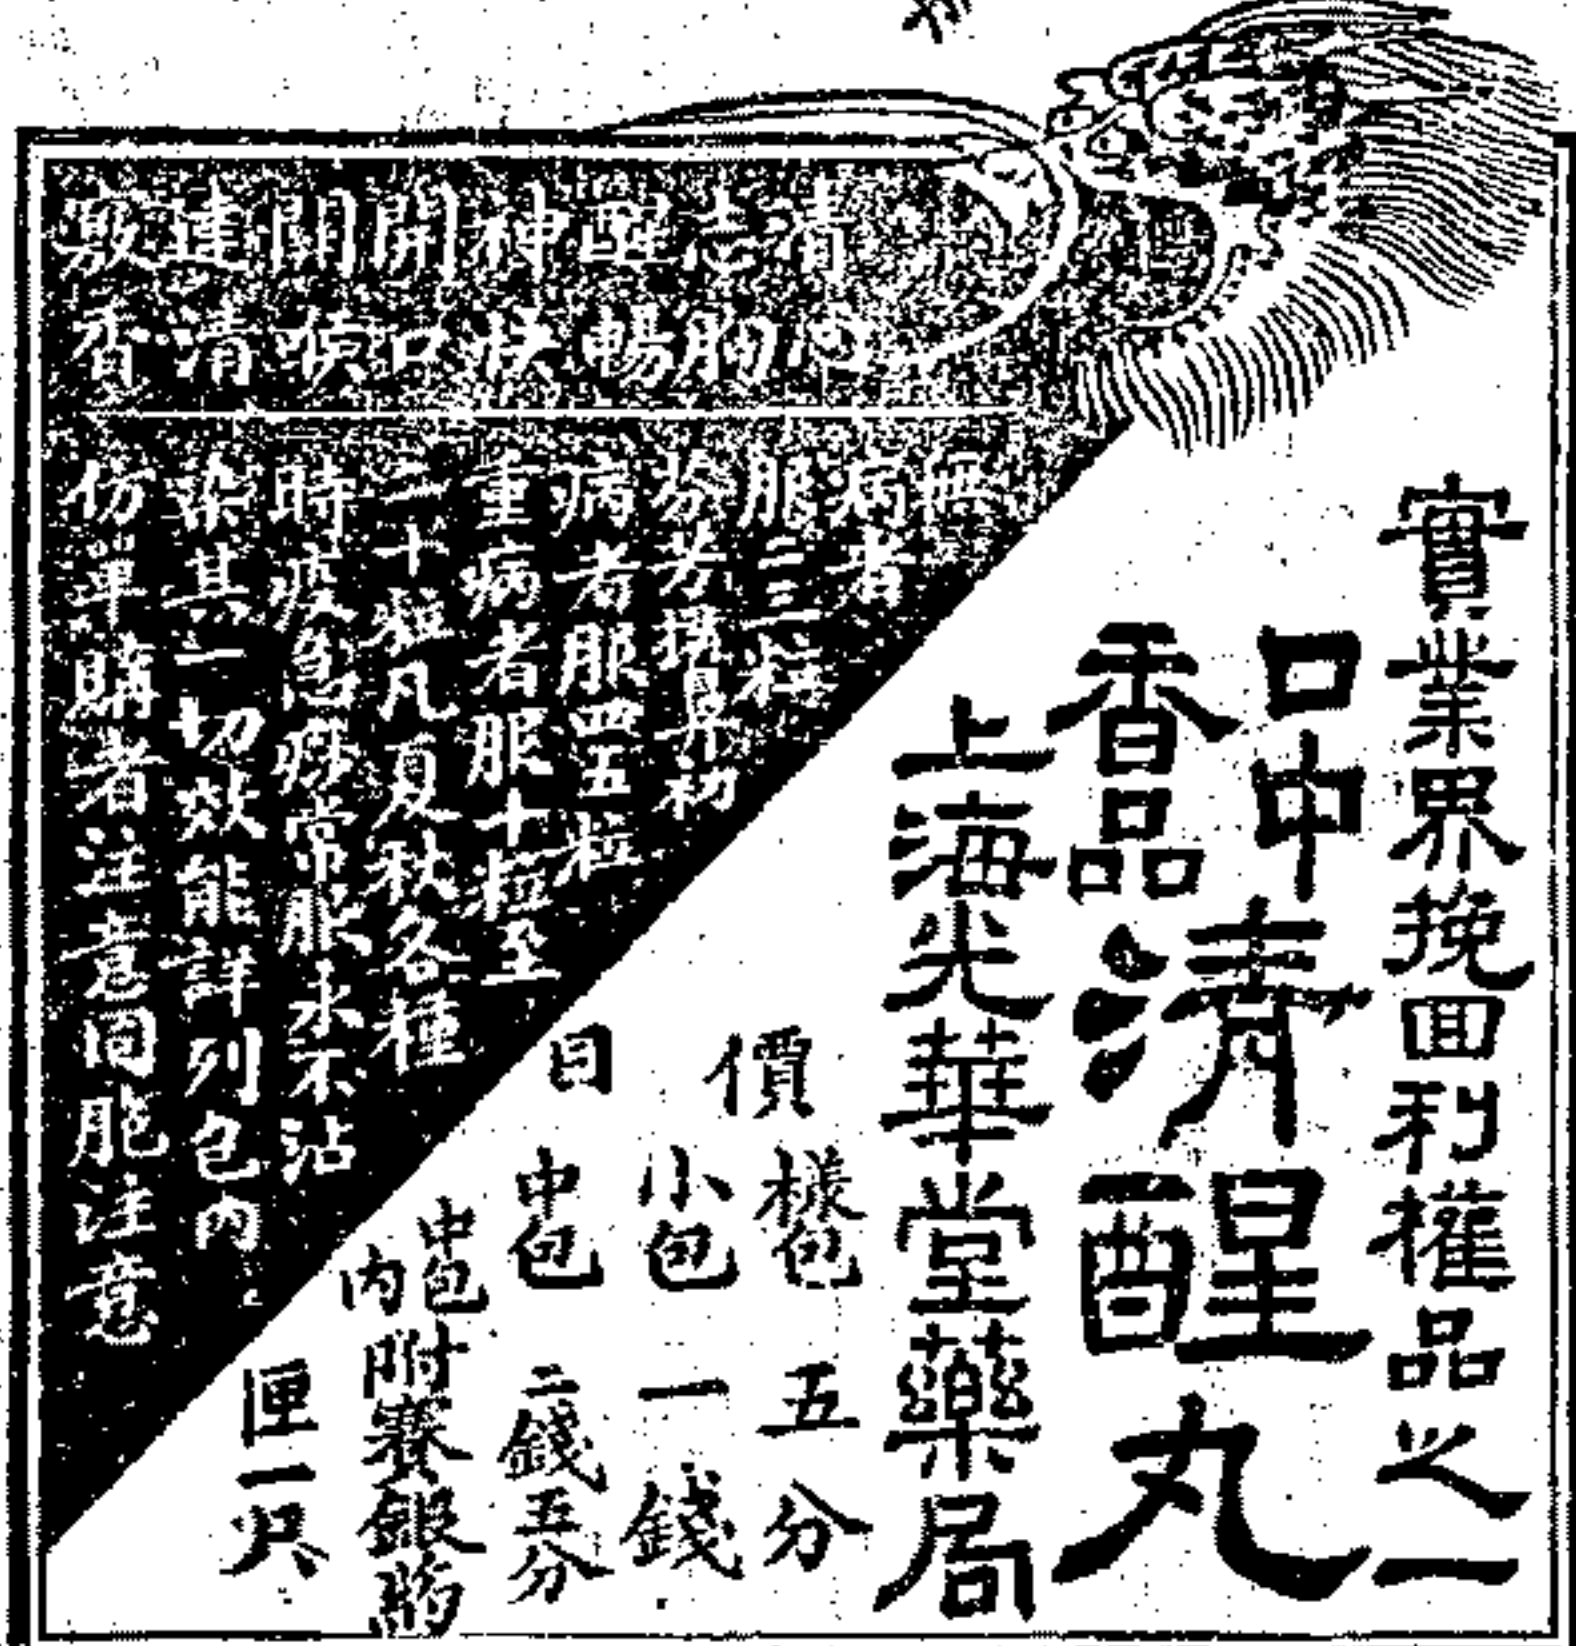 實業界挽回利權品之一
口中
香品
清醒丸
上海光華堂藥局
價目
樣包 五分
小包 一錢
中包 二錢五分
中包
內附賽銀
匣一只
清心
志胸
醒暢
神快
開口
關喉
速清
香
無
病者
服二三粒
芬芳撲鼻初
病者服四五粒
重病者服十粒至
二十粒凡夏秋各種
時疫急痧常服永不沾
染其一切效能詳列包內
仿單購者注意同胞注意